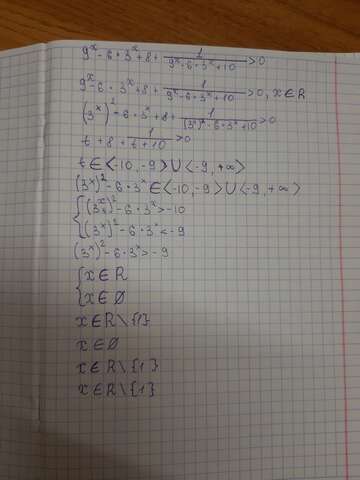 9^x - 6 · 3^x + 8 + 1/(9^x - 6 · 3^x + 10) > 0
9^x - 6 · 3^x + 8 + 1/(9^x - 6 · 3^x + 10) > 0, x ∈ R
(3^x)^2 - 6 · 3^x + 8 + 1/((3^x)^2 - 6 · 3^x + 10) > 0
t + 8 + 1/(t + 10) > 0
t ∈ ⟨-10, -9⟩ ∪ ⟨-9, +∞⟩
(3^x)^2 - 6 · 3^x ∈ ⟨-10, -9⟩ ∪ ⟨-9, +∞⟩
{ (3^x)^2 - 6 · 3^x > -10
(3^x)^2 - 6 · 3^x < -9
(3^x)^2 - 6 · 3^x > -9
{ x ∈ R
x ∈ ∅
x ∈ R \ {1}
x ∈ ∅
x ∈ R \ {1}
x ∈ R \ {1}